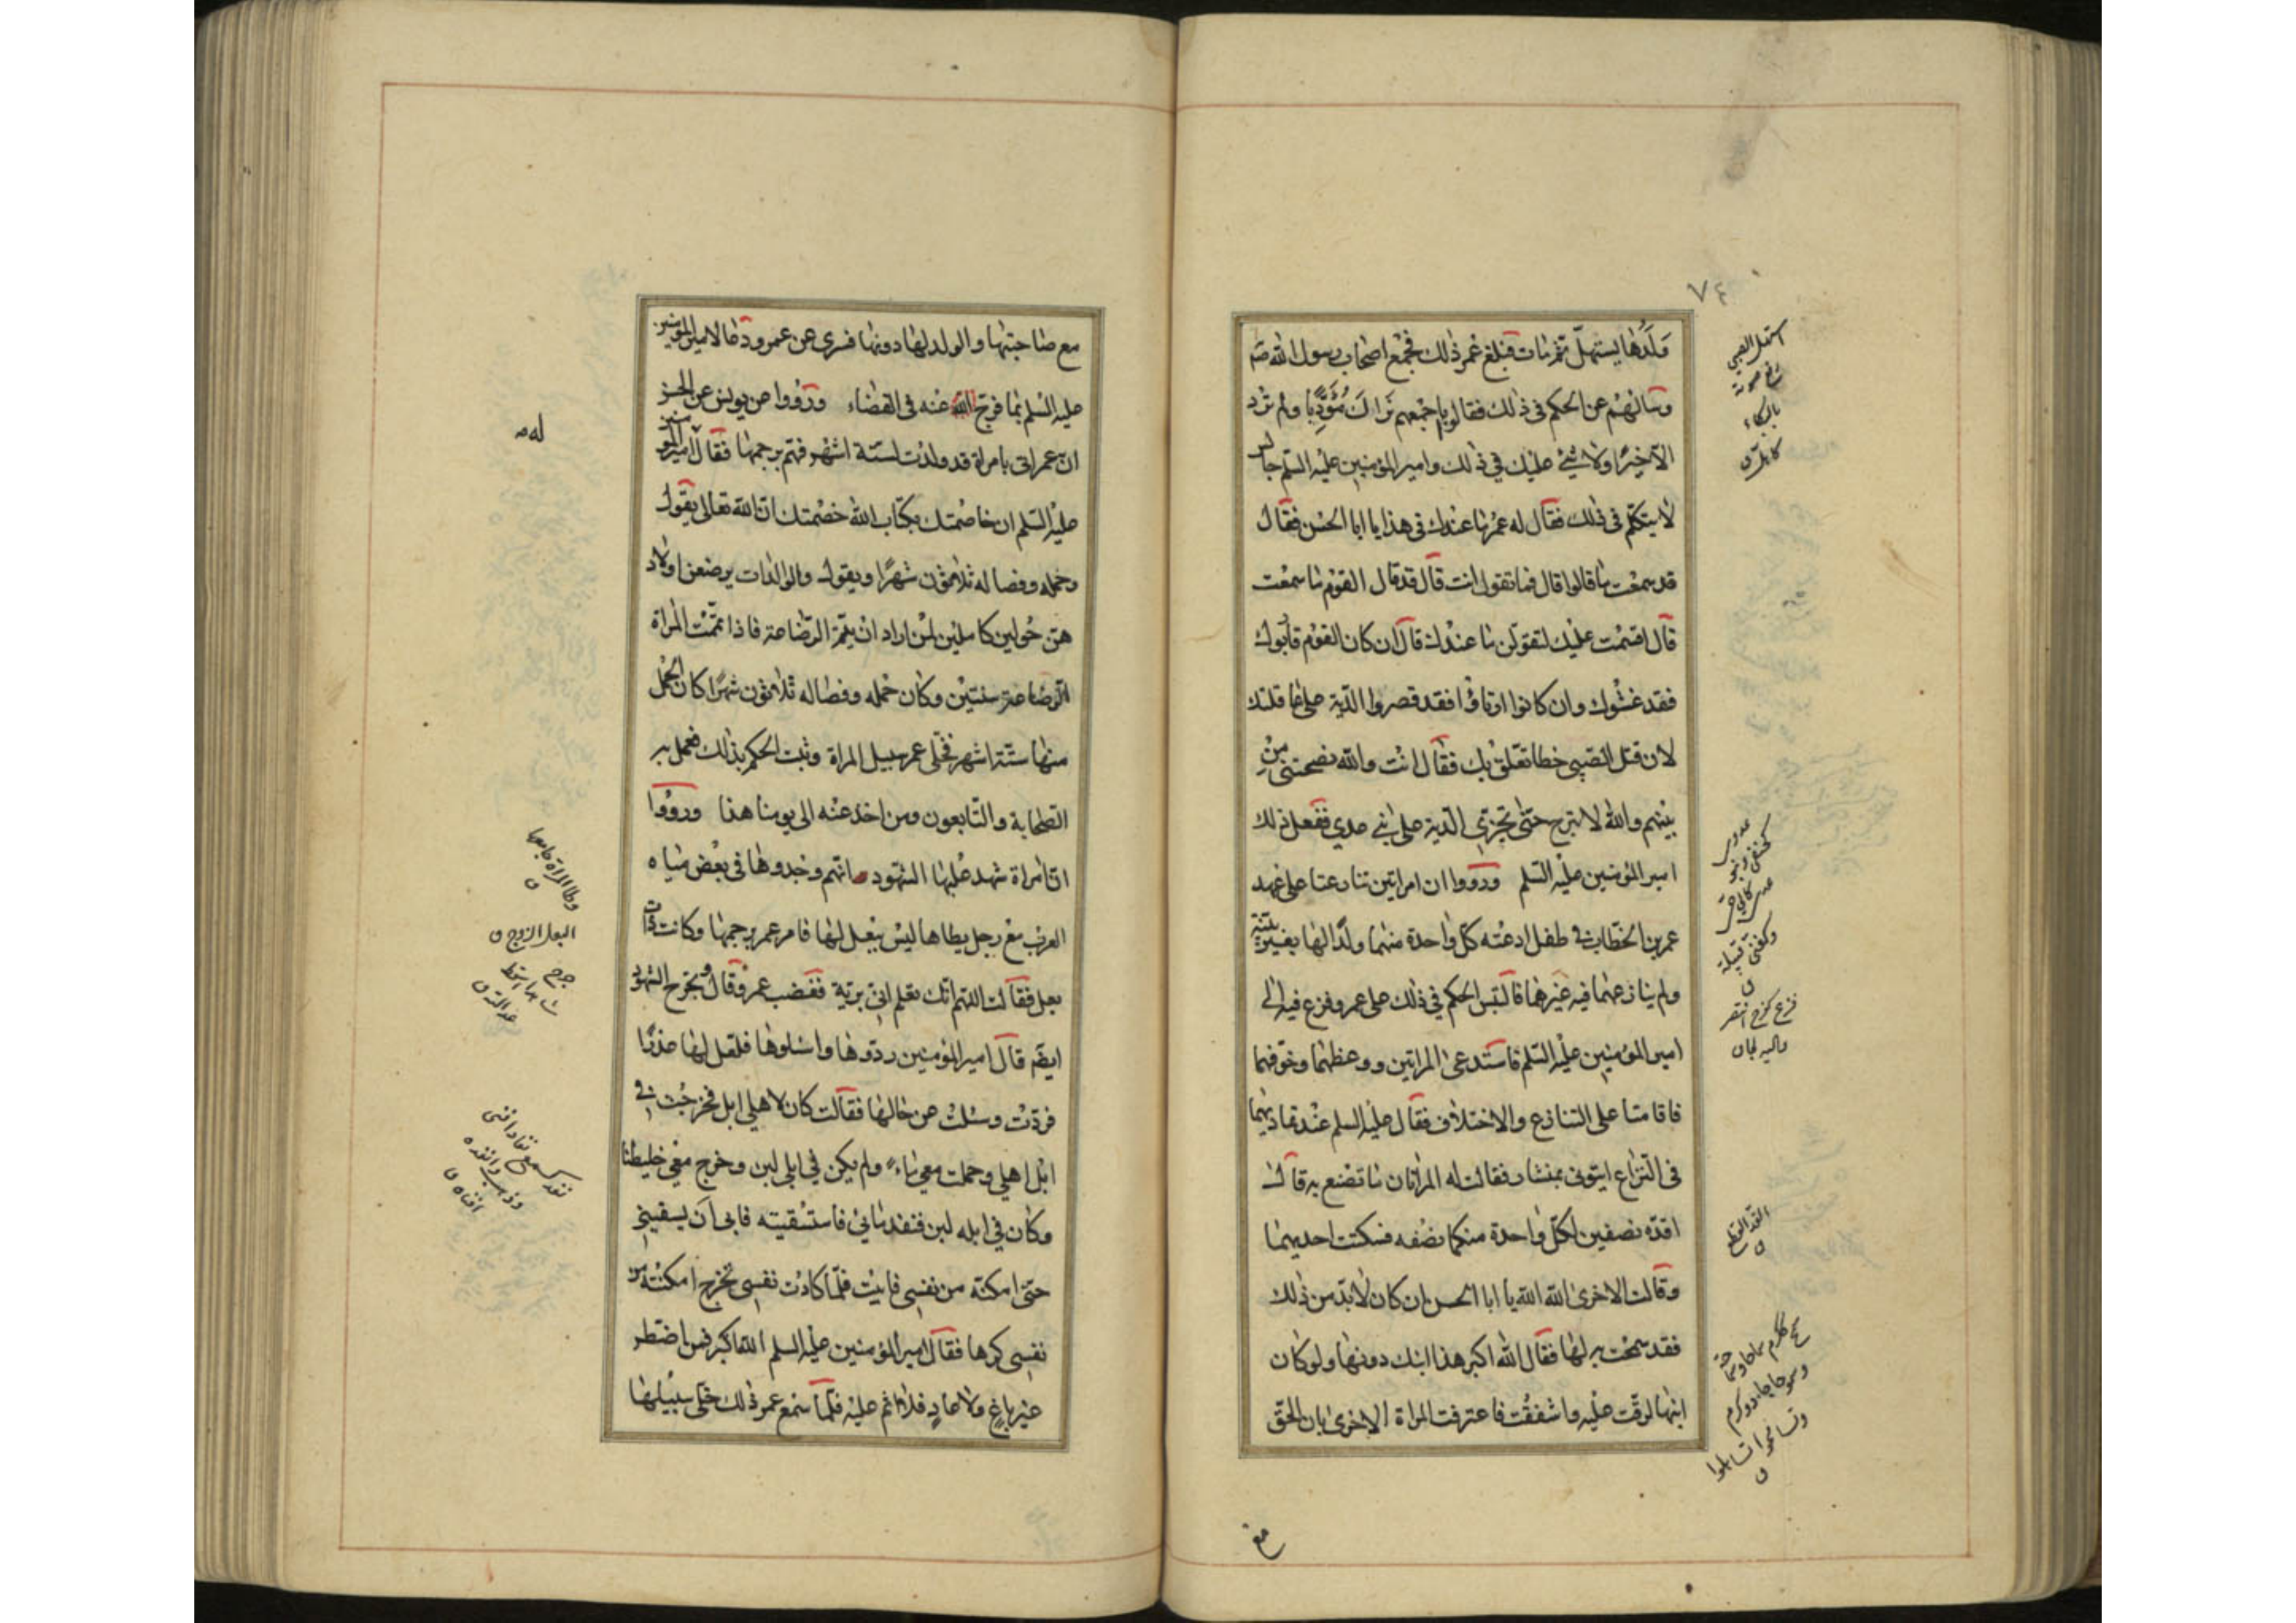 ٧٤
وَلَدُها يستهلّ ثمّ مات فبلغ عمر ذلك فجمع اصحاب رسول الله صم
وسالهم عن الحكم في ذلك فقالوا باجمعهم نَراكَ مُؤدِّبًا ولم ترد
الّا خيرًا ولا شئ عليك في ذلك وامير المؤمنين عليه السّلم جالس
لا يتكلّم في ذلك فقال له عمر ما عندك في هذا يا ابا الحسن فقال
قد سمعت ما قالوا قال فما تقول انت قال قد قال القوم ما سمعت
قال اقسمت عليك لتقولن ما عندك قال ان كان القوم قاربوك
فقد غشّوك وان كانوا ارتاؤا فقد قصروا الدّية على عاقلتك
لان قتل الصّبي خطا تعلّق بك فقال انت والله نصحتنى من
بينهم والله لا تبرح حتّى تجزّي الدّية على بني عدي ففعل ذلك
امير المؤمنين عليه السّلم ورووا ان امراتين تنازعتا على عهد
عمر بن الخطّاب في طفل ادعته كلّ واحدة منهما ولدًا لها بغير بيّنة
ولم ينازعهما فيه غيرها فالتبس الحكم في ذلك على عمر وفزع فيه الى
امير المؤمنين عليه السّلم فاستدعى المراتين ووعظهما وخوّفهما
فاقامتا على التنازع والاختلاف فقال عليه السلم عند تماديهما
في النّزاع ايتوني بمنشار فقالت له المراتان ما تصنع به قال
اقدّه نصفين لكلّ واحدة منكما نصفه فسكتت احديهما
وقالت الاخرى الله الله يا ابا الحسن ان كان لا بدّ من ذلك
فقد سمحت به لها فقال الله اكبر هذا ابنك دونها ولو كان
ابنها لرقّت عليه واشفقت فاعترفت المراة الاخرى بان الحقّ
مع
استهل الصبي
رفع صوته
بالبكاء
وكغنى قبيلة
ق
فزع كفرح استنصر
القد القطع
ق
مع صاحبتها والولد لها دونها فسرى عن عمر ودعا لامير المؤمنين
عليه السّلم بما فرج الله عنه في القضاء ورووا عن يونس عن الحسن
انّ عمر اتى بامراة قد ولدت لستّة اشهر فهمّ برجمها فقال امير المؤمنين
عليه السّلم ان خاصمتك بكتاب الله خصمتك انّ الله تعالى يقول
وحمله وفصاله ثلاثون شهرًا ويقول والوالدات يرضعن اولاد
هنّ حولين كاملين لمن اراد ان يتمّ الرّضاعة فاذا تمّمت المراة
الرّضاعة سنتين وكان حمله وفصاله ثلاثون شهرًا كان الحمل
منها ستّة اشهر فخلّى عمر سبيل المراة وثبت الحكم بذلك فعمل به
الصّحابة والتّابعون ومن اخذ عنه الى يومنا هذا ورووا
انّ امراة شهد عليها الشّهود انّهم وجدوها في بعض مياه
العرب مع رجل يطاها ليس ببعل لها فامر عمر برجمها وكانت ذات
بعل فقالت اللهم انّك تعلم انّي بريّة فغضب عمر وقال وتجرح الشّهود
ايضم قال امير المؤمنين ردّوها واسئلوها فلعلّ لها عذرًا
فردّت وسئلت عن حالها فقالت كان لاهلي ابل فخرجت في
ابل اهلي وحملت معي ماء ولم يكن في ابلي لبن وخرج معي خليطنا
وكان في ابله لبن فنفد مائي فاستسقيته فابى ان يسقيني
حتّى امكنه من نفسي فابيت فلمّا كادت نفسي تخرج امكنته من
نفسي كرها فقال امير المؤمنين عليه السلم الله اكبر فمن اضطر
غير باغٍ ولا عادٍ فلا اثم عليه فلمّا سمع عمر ذلك خلّى سبيلها
وطا المراة جامعها
ق
البعل الزوج ق